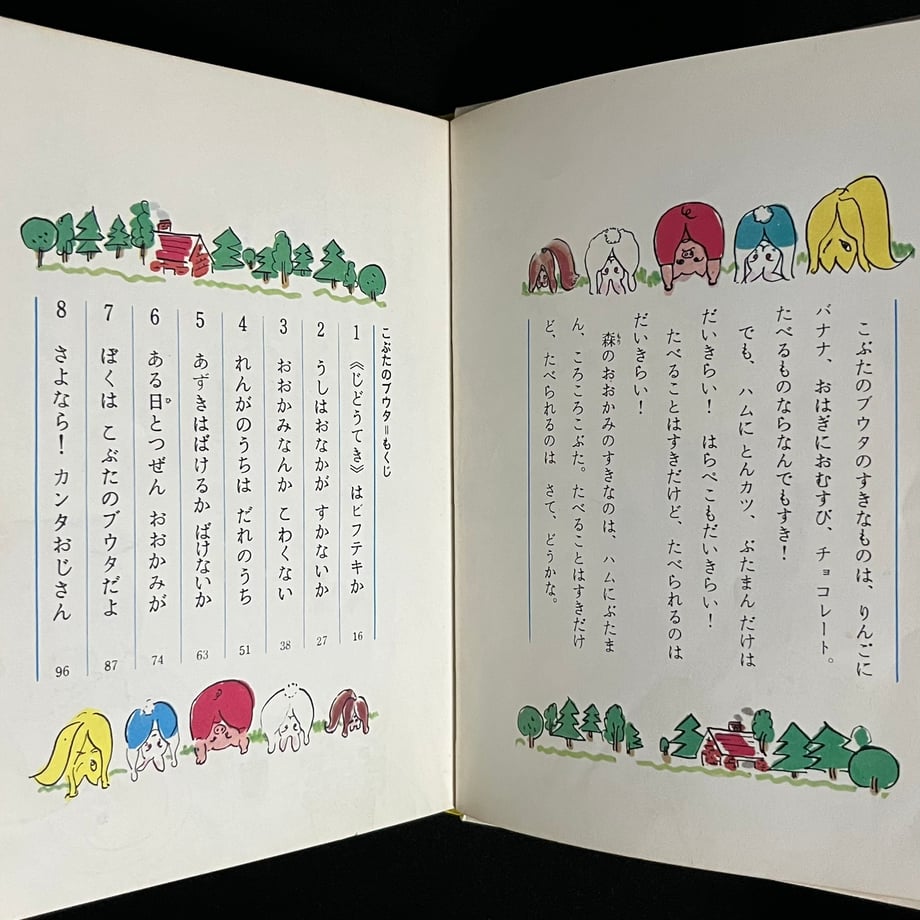 こぶたのブウタのすきなものは、りんごに
バナナ、おはぎにおむすび、チョコレート。
たべるものならなんでもすき！
でも、ハムにとんカツ、ぶたまんだけは
だいきらい！　はらぺこもだいきらい！
たべることはすきだけど、たべられるのは
だいきらい！
森のおおかみのすきなのは、ハムにぶたま
ん、ころころこぶた。たべることはすきだけ
ど、たべられるのは　さて、どうかな。
こぶたのブウタ＝もくじ
1　《じどうてき》はビフテキか　16
2　うしはおなかが　すかないか　27
3　おおかみなんか　こわくない　38
4　れんがのうちは　だれのうち　51
5　あずきはばけるか　ばけないか　63
6　ある日とつぜん　おおかみが　74
7　ぼくは　こぶたのブウタだよ　87
8　さよなら！　カンタおじさん　96